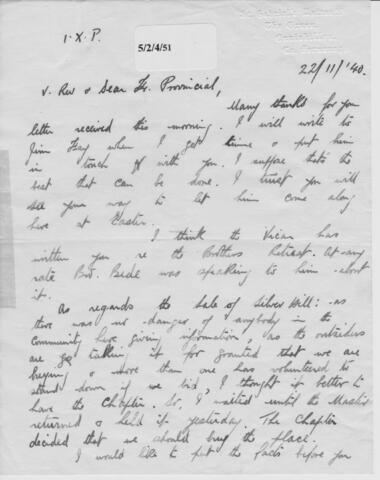 I.X.P.
5/2/4/51
22/11/'40.
V. Rev & Dear Fr. Provincial,
Many thanks for your
letter received this morning. I will write to
Jim Fay when I get time & put him
in touch with you. I suppose that's the
best that can be done. I trust you will
see your way to let him come along
here at Easter.
I think the Vicar has
written you re the Brothers Retreat. At any
rate Bro. Bede was speaking to him about
it.
As regards the sale of Silver Hill: - as
there was no danger of anybody in the
community here giving information, as the outsiders
are taking it for granted that we are
buying & more than one has volunteered to
stand down if we bid, I thought it better to
have the Chapter. So, I waited until the Master
returned & held it yesterday. The Chapter
decided that we should buy the place.
I would like to put the facts before you